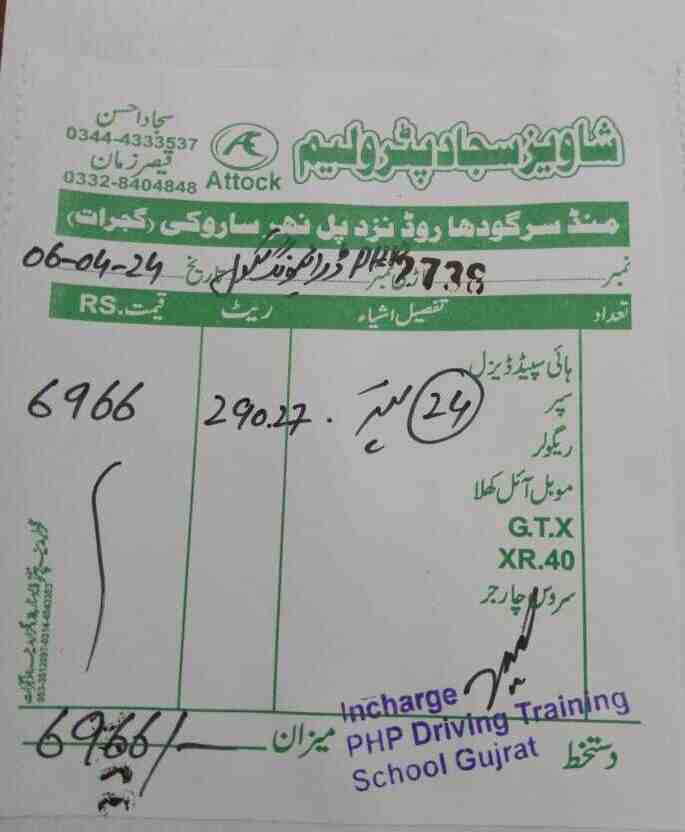 شاویز سجاد پٹرولیم
سجاد احسن
0344-4333537
قیصر زمان
0332-8404848
Attock
منڈ سرگودھا روڈ نزد پل نہر ساروکی (گجرات)
نمبر 2738 تاریخ 06-04-24
تعداد تفصیل اشیاء ریٹ قیمت RS.
ہائی سپیڈ ڈیزل
سپر 24 290.27 6966
ریگولر
موبل آئل کھلا
G.T.X
XR.40
سروس چارجز
میزان 6966/-
دستخط
Incharge
PHP Driving Training
School Gujrat